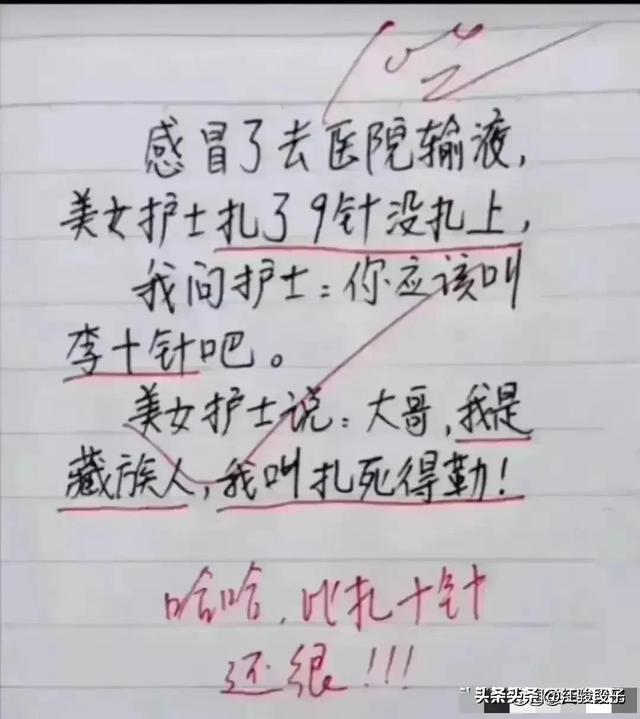 感冒了去医院输液，
美女护士扎了9针没扎上，
我问护士：你应该叫
李十针吧。
美女护士说：大哥，我是
藏族人，我叫扎死得勤！
哈哈，比扎十针
还狠！！！